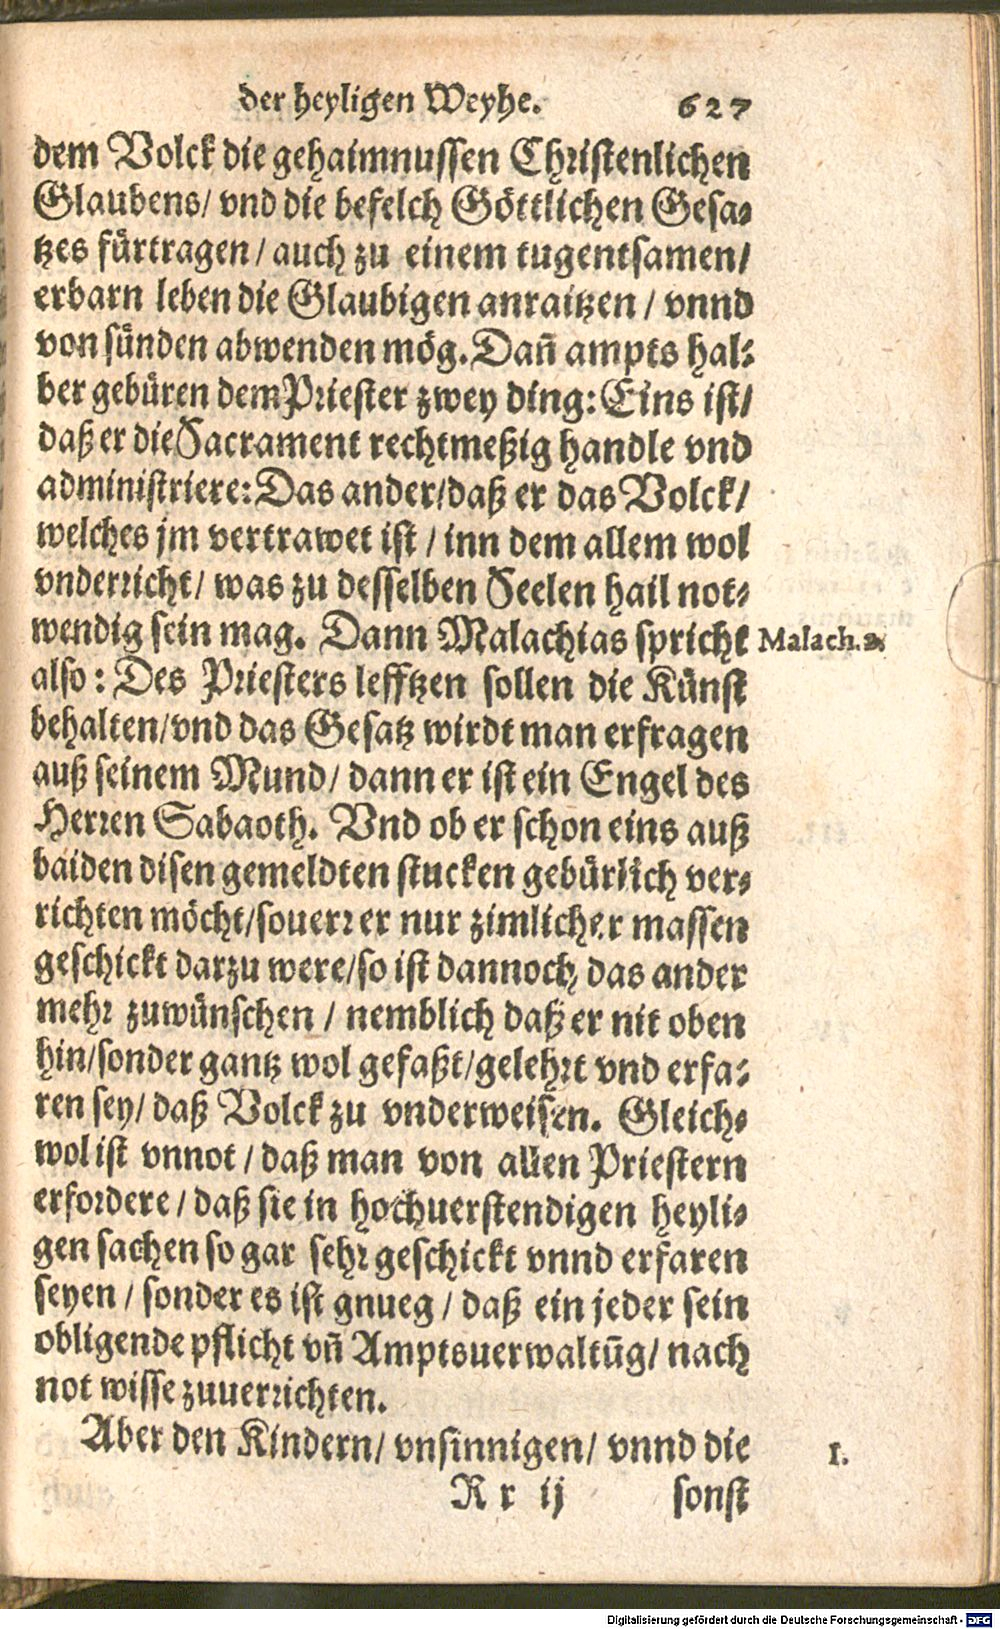 der heyligen Weyhe. 627
dem Volck die gehaimnussen Christenlichen
Glaubens/ vnd die befelch Göttlichen Gesa-
tzes fürtragen / auch zu einem tugentsamen/
erbarn leben die Glaubigen anraitzen / vnnd
von sünden abwenden mög. Dañ ampts hal-
ber gebüren dem Priester zwey ding: Eins ist/
daß er die Sacrament rechtmeßig handle vnd
administriere: Das ander/daß er das Volck/
welches jm vertrawet ist / inn dem allem wol
vnderricht/ was zu desselben Seelen hail not-
wendig sein mag. Dann Malachias spricht Malach. 2.
also: Des Priesters lefftzen sollen die Künst
behalten/vnd das Gesatz wirdt man erfragen
auß seinem Mund/ dann er ist ein Engel des
Herren Sabaoth. Vnd ob er schon eins auß
baiden disen gemeldten stucken gebürlich ver-
richten möcht/souerr er nur zimlicher massen
geschickt darzu were/so ist dannoch das ander
mehr zuwünschen / nemblich daß er nit oben
hin/sonder gantz wol gefaßt/gelehrt vnd erfa-
ren sey/ daß Volck zu vnderweisen. Gleich-
wol ist vnnot / daß man von allen Priestern
erfordere / daß sie in hochuerstendigen heyli-
gen sachen so gar sehr geschickt vnnd erfaren
seyen / sonder es ist gnueg / daß ein jeder sein
obligende pflicht vñ Amptsuerwaltũg/ nach
not wisse zuuerrichten.
Aber den Kindern/ vnsinnigen/ vnnd die 1.
R r ij sonst
Digitalisierung gefördert durch die Deutsche Forschungsgemeinschaft - DFG